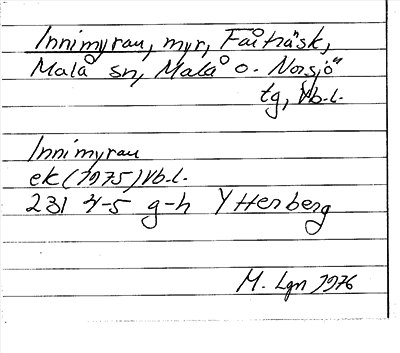 Innimyran, myr, Fårträsk,
Malå sn, Malå o. Norsjö
tg, Vb.l.
Innimyran
ek (1975) Vb.l.
231 4-5 g-h Ytterberg
M. Lgn 1976